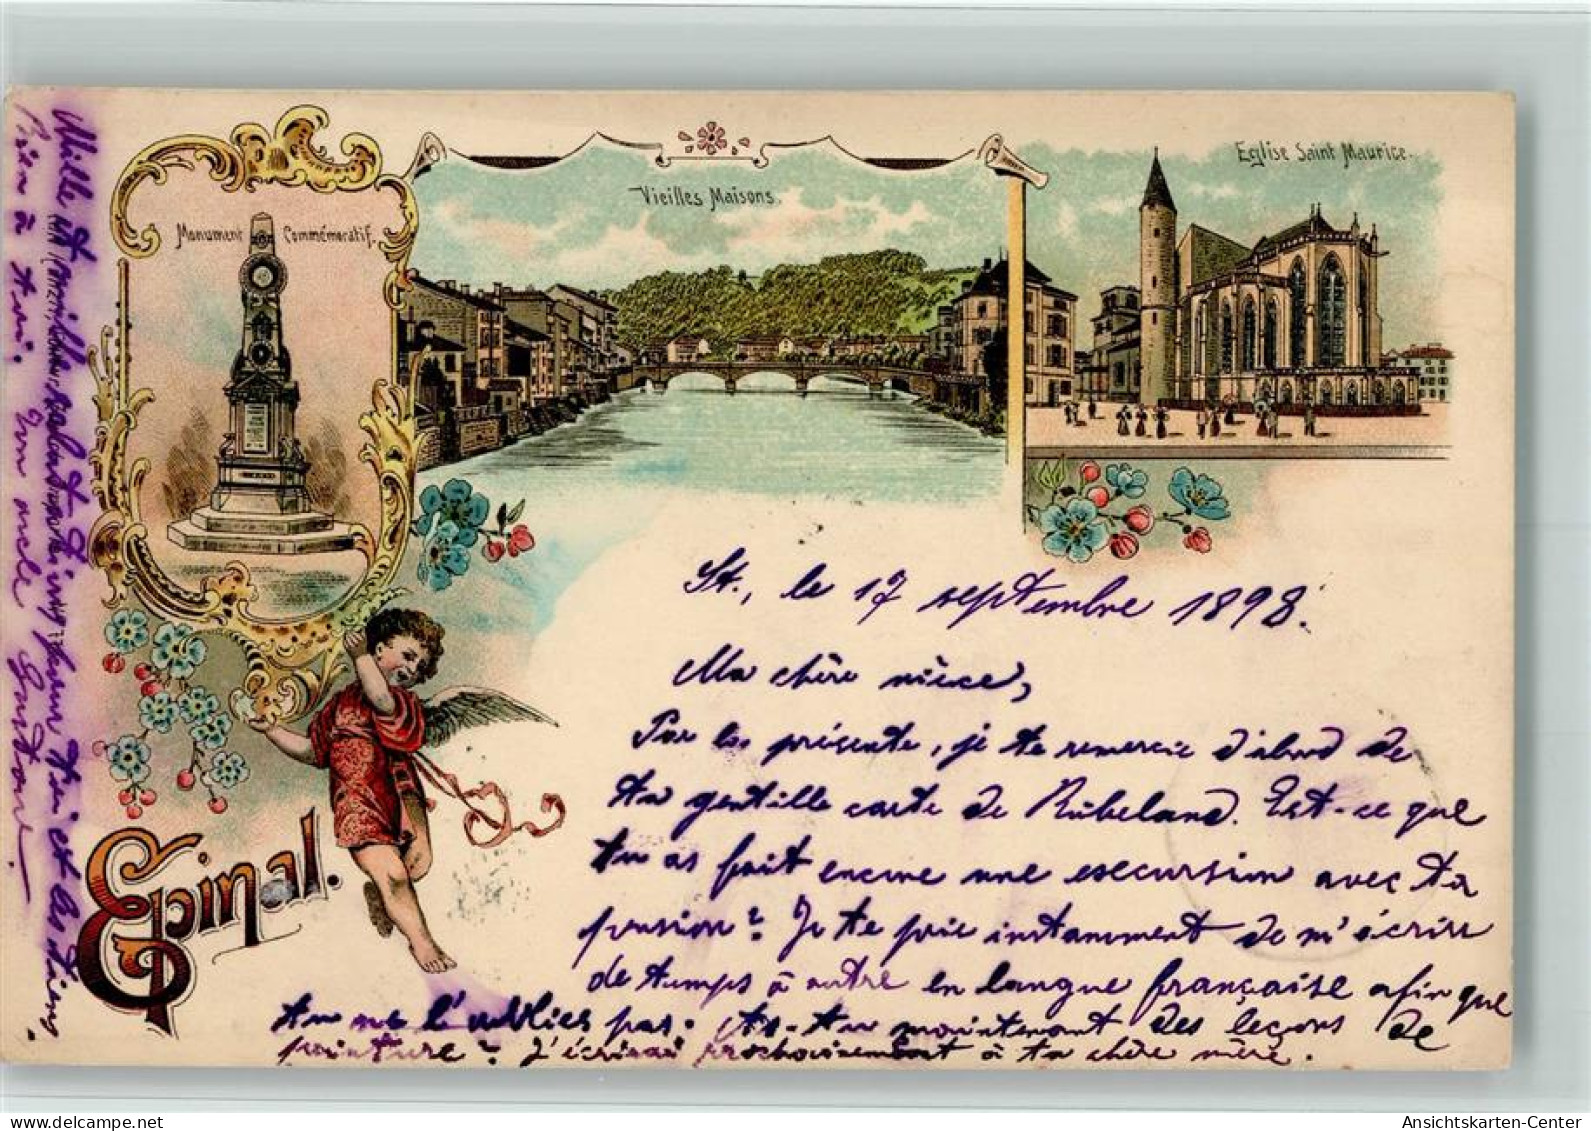 Monument Commémoratif.
Vieilles Maisons.
Eglise Saint Maurice.
Epinal.
St., le 17 septembre 1898.
Ma chère nièce,
Par la présente, je te remercie d'abord de
ta gentille carte de Rübeland. Est-ce que
tu as fait encore une excursion avec ta
pension? Je te prie instamment de m'écrire
de temps à autre en langue française afin que
tu ne l'oublies pas. As-tu maintenant des leçons de
peinture? J'écrirai prochainement à ta chère mère.
Mille et mille salut pour toi et les tiens.
Bien à toi. Ton oncle Gustave.
AnsichtsKarten-Center